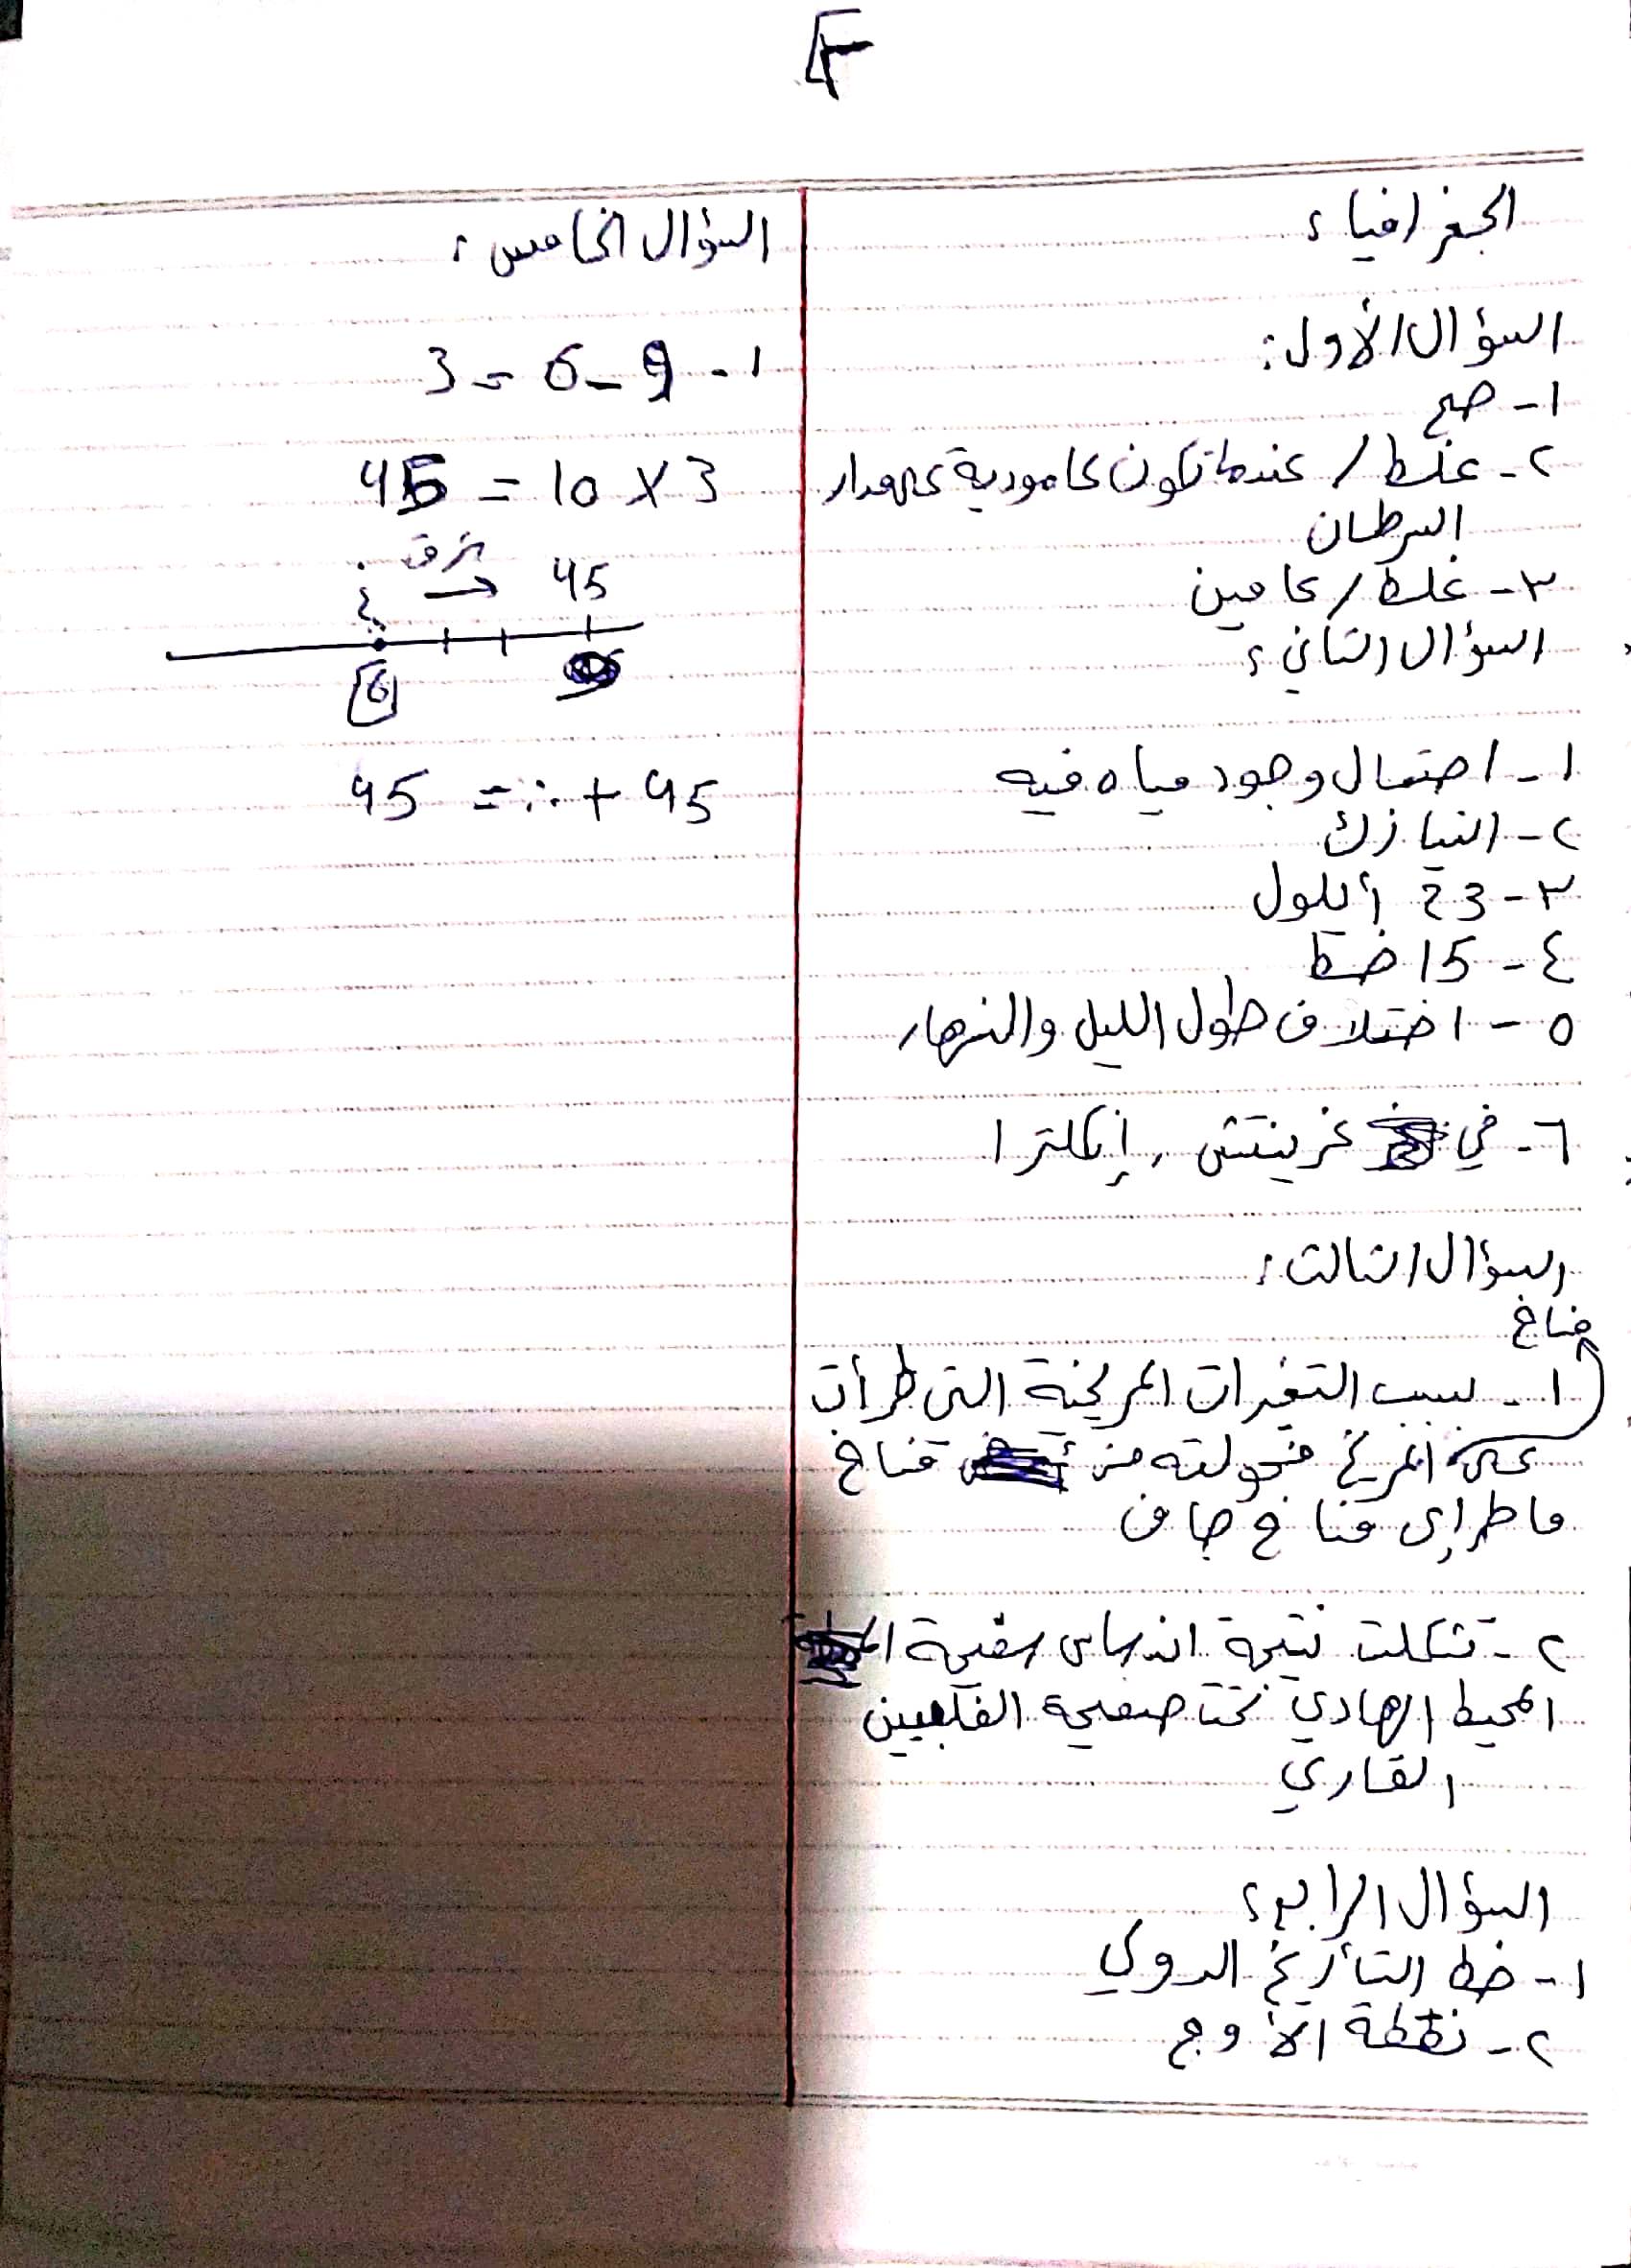 ٣
الجغرافيا:
السؤال الأول:
١- صح
٢- غلط / عندما تكون عامودية على مدار
السرطان
٣- غلط / عامين
السؤال الثاني:
١- احتمال وجود مياه فيه
٢- النيازك
٣- 23 أيلول
٤- 15 خط
٥- اختلاف طول الليل والنهار
٦- في غرينتش، إنكلترا
السؤال الثالث:
مناخ
١- بسبب التغيرات المريخية التي طرأت
على المريخ فحولته من مناخ
ماطر إلى مناخ جاف
٢- تشكلت نتيجة اندساس صفيحة
المحيط الهادي تحت صفيحة الفلبين
القاري
السؤال الرابع:
١- خط التأريخ الدولي
٢- نقطة الأوج
السؤال الخامس:
١- 9 - 6 = 3
3 × 15 = 45
شرق
45 →
6
45 + = 45